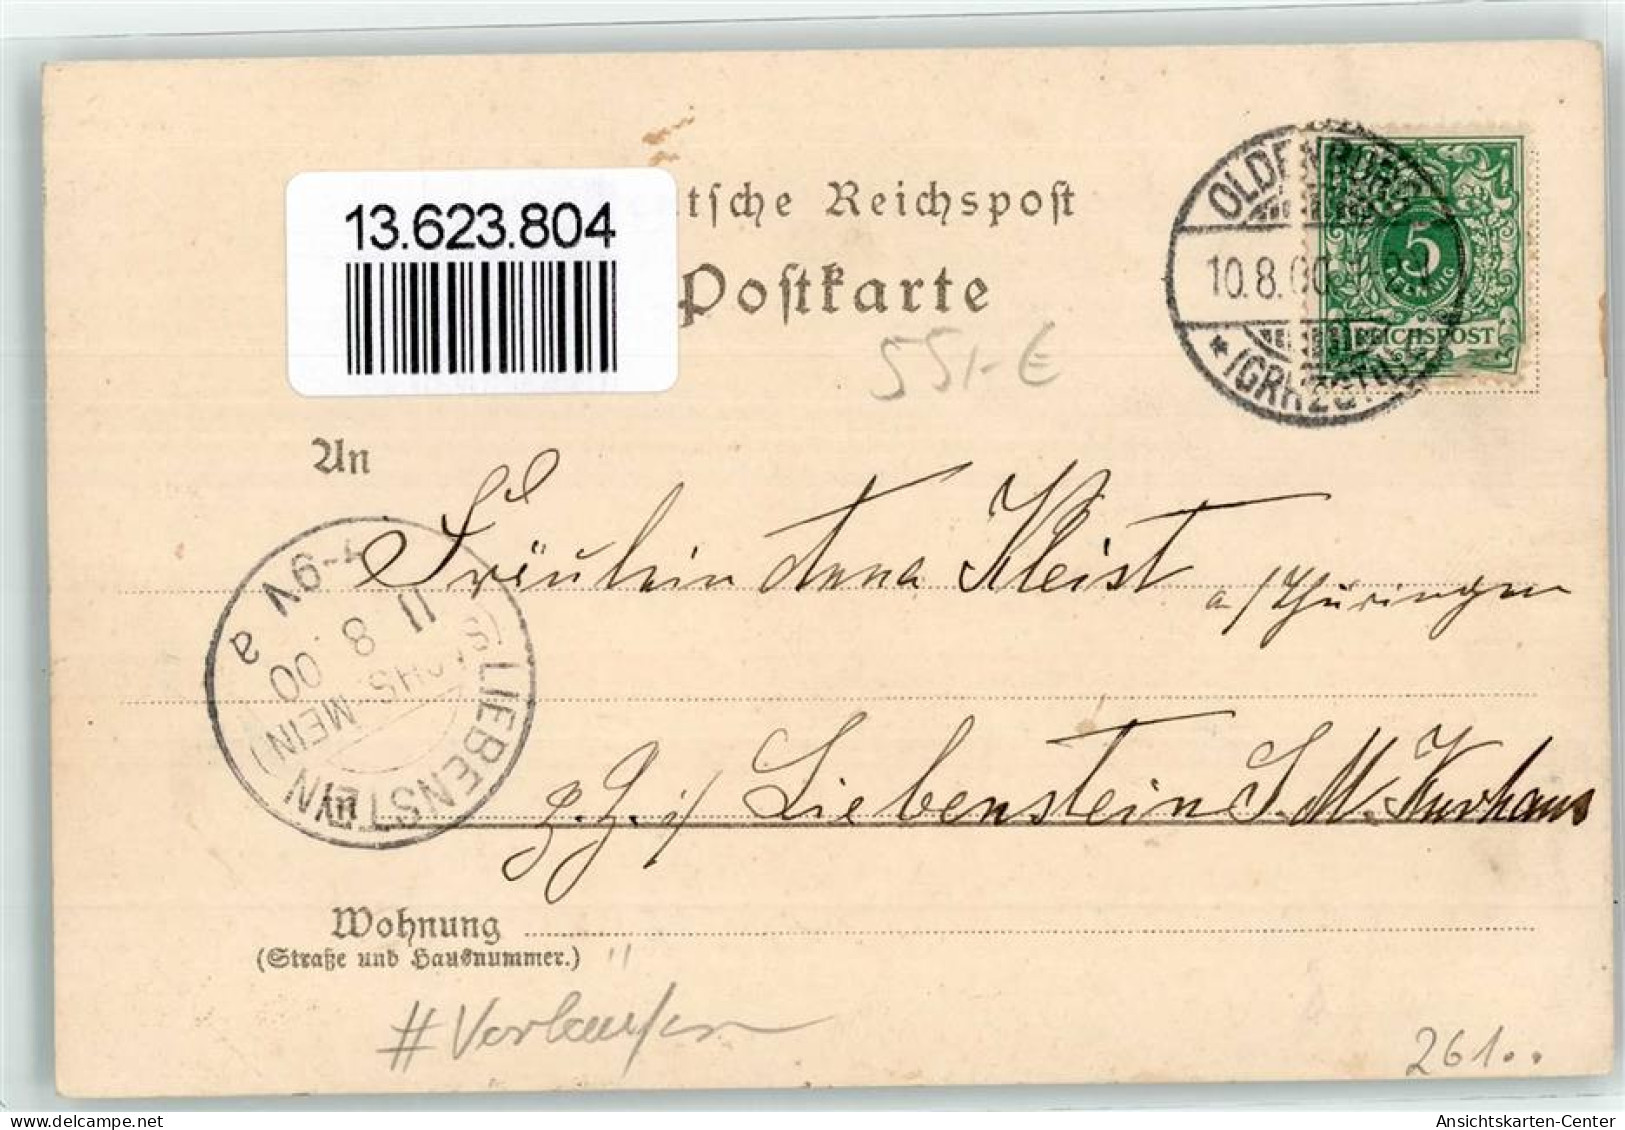 13.623.804
tsche Reichspost
Postkarte
55,-€
OLDENBURG
10.8.00
* (GRHZGT.)
5
PFENNIG
REICHSPOST
An
Fräulein Anna Kleist
a/Thüringen
LIEBENSTEIN
(SACHS MEIN)
11 8 00
7-9V
a
In z. Z. i/ Liebenstein S. M. Kurhaus
Wohnung
(Straße und Hausnummer.)
#Vorläufer
261..
Ansichtskarten-Center